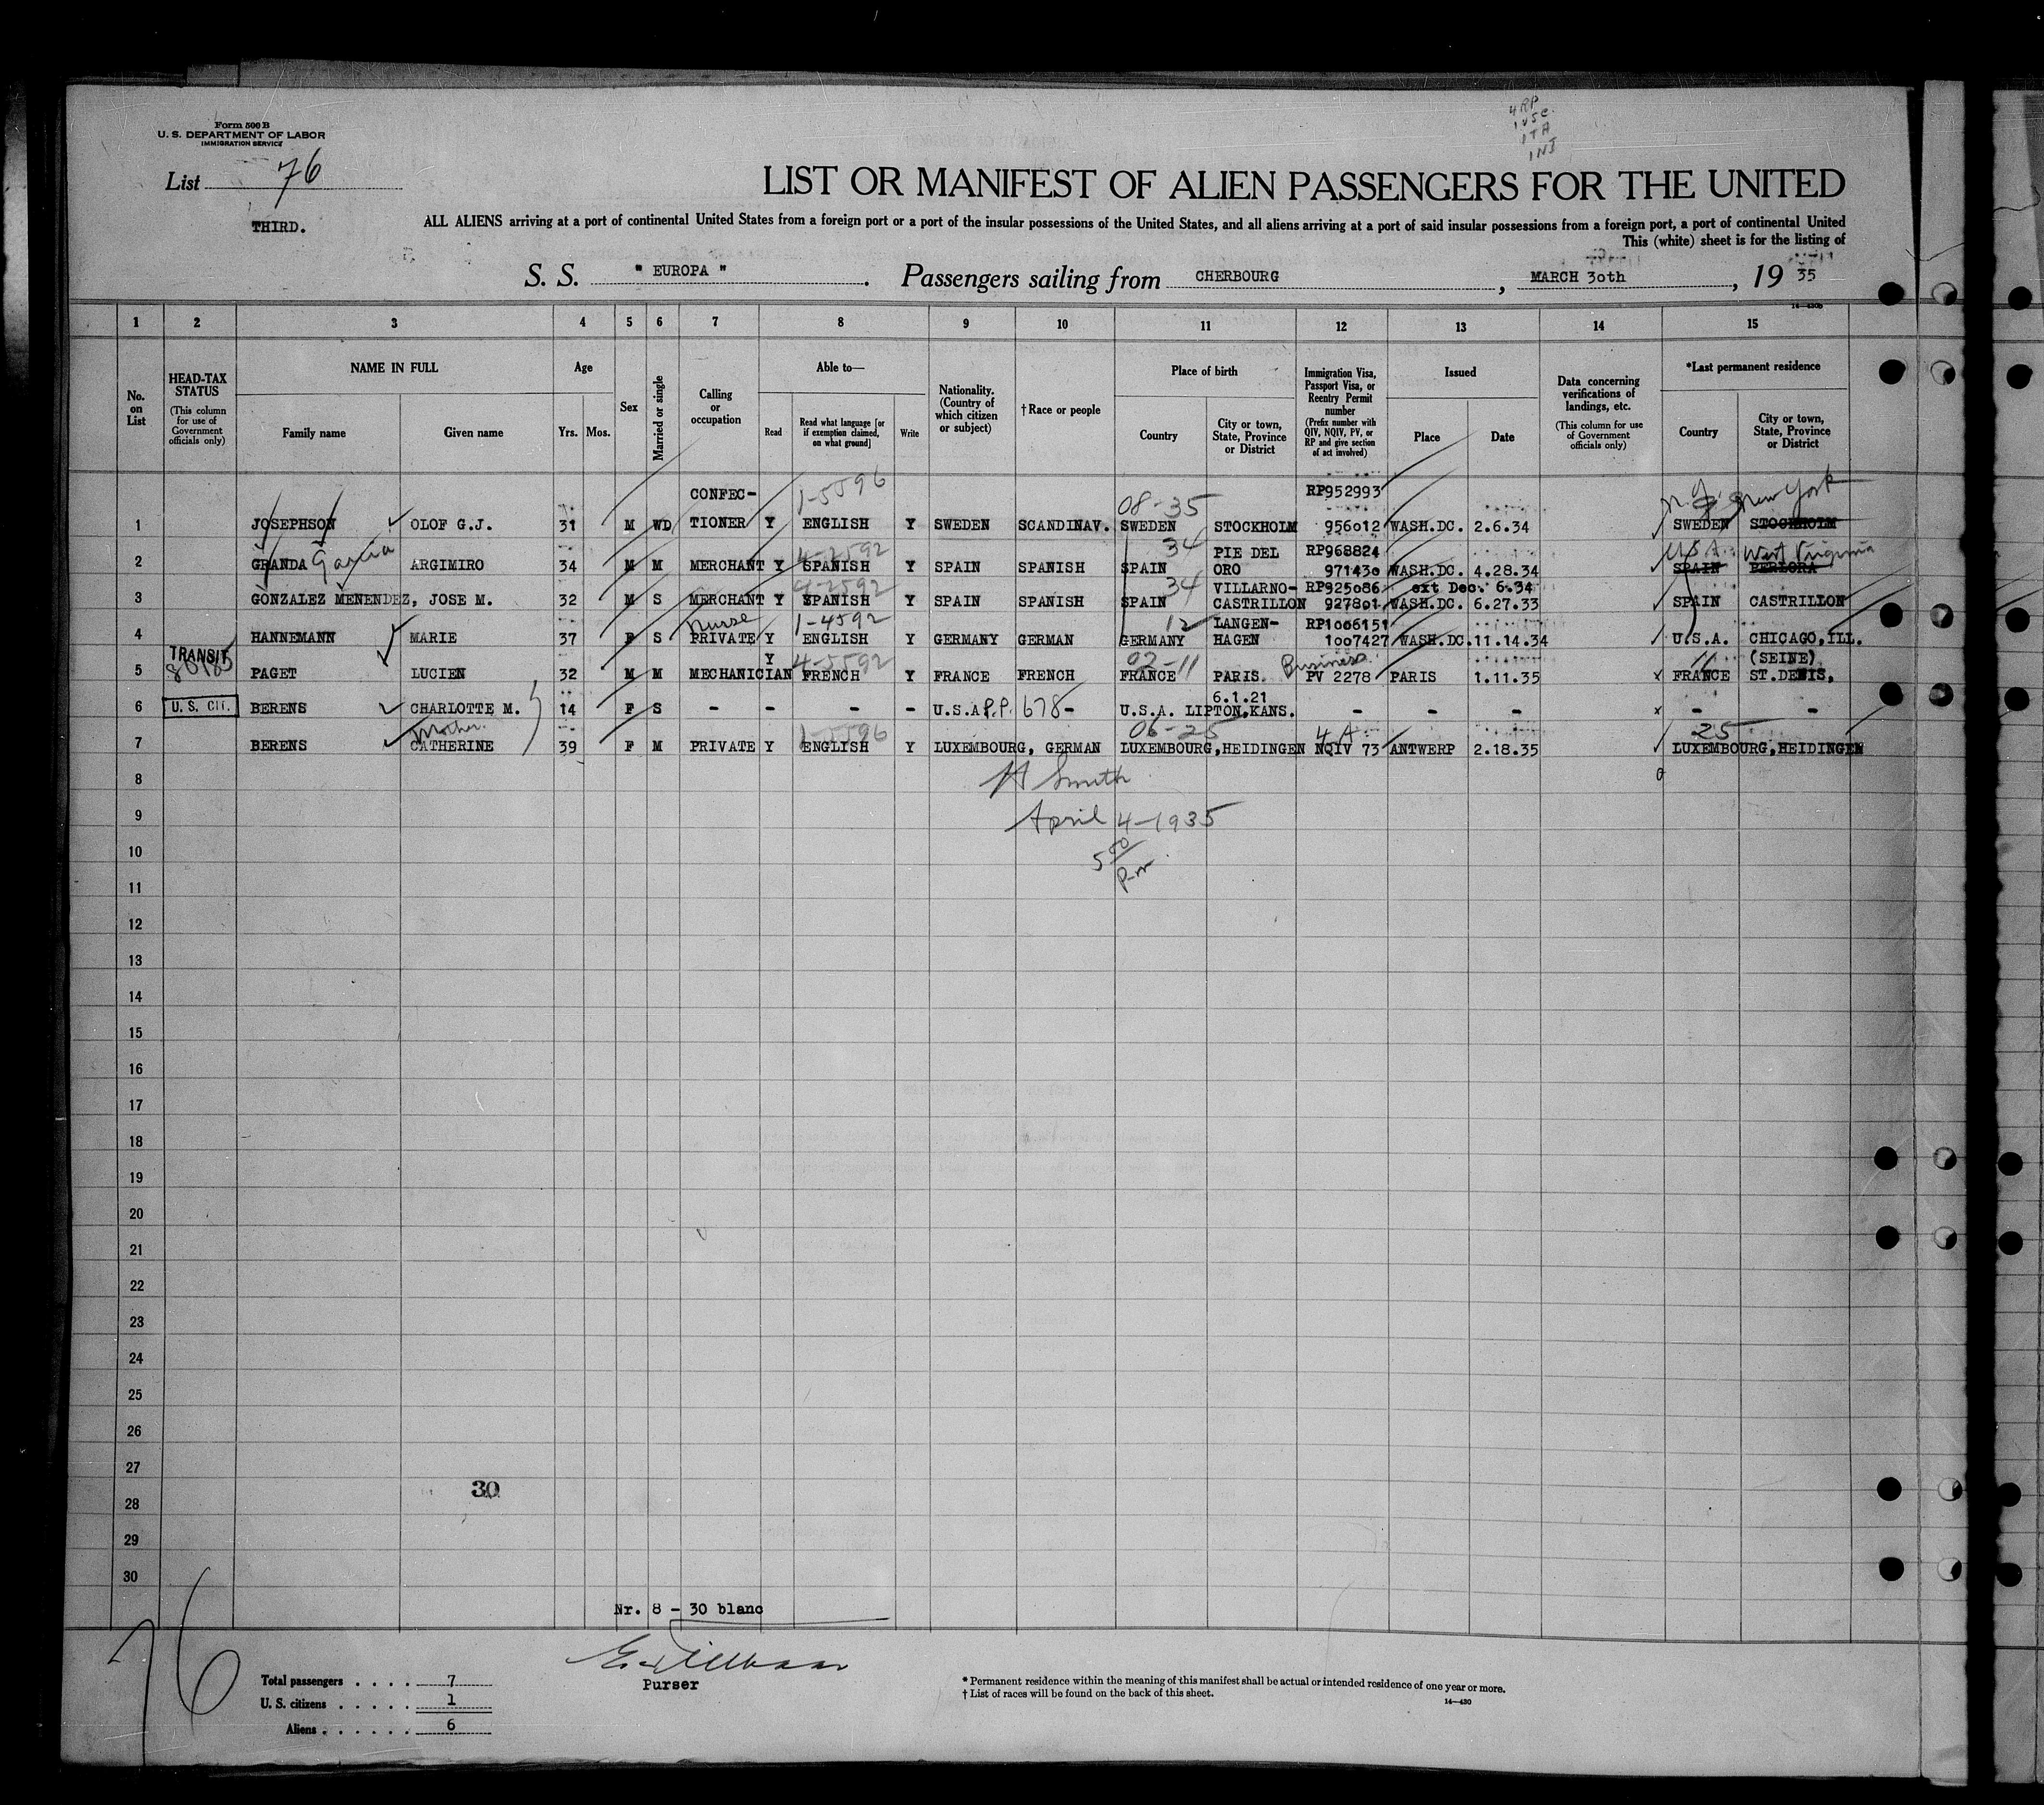 4RP
1USC
1TA
1NI
Form 500 B
U. S. DEPARTMENT OF LABOR
IMMIGRATION SERVICE
List 76
THIRD.
LIST OR MANIFEST OF ALIEN PASSENGERS FOR THE UNITED
ALL ALIENS arriving at a port of continental United States from a foreign port or a port of the insular possessions of the United States, and all aliens arriving at a port of said insular possessions from a foreign port, a port of continental United
This (white) sheet is for the listing of
S. S. " EUROPA ". Passengers sailing from CHERBOURG, MARCH 3oth, 19 35
1 2 3 4 5 6 7 8 9 10 11 12 13 14 15
No. on List
HEAD-TAX STATUS (This column for use of Government officials only)
NAME IN FULL
Family name Given name
Age
Yrs. Mos.
Sex
Married or single
Calling or occupation
Able to—
Read
Read what language [or if exemption claimed, on what ground]
Write
Nationality. (Country of which citizen or subject)
† Race or people
Place of birth
Country
City or town, State, Province or District
Immigration Visa, Passport Visa, or Reentry Permit number (Prefix number with QIV, NQIV, PV, or RP and give section of act involved)
Issued
Place Date
Data concerning verifications of landings, etc. (This column for use of Government officials only)
*Last permanent residence
Country
City or town, State, Province or District
CONFEC- 1-5596 08-35 RP952993 N.Y. New York
1 JOSEPHSON OLOF G.J. 31 M WD TIONER Y ENGLISH Y SWEDEN SCANDINAV. SWEDEN STOCKHOLM 956o12 WASH.DC. 2.6.34 SWEDEN STOCKHOLM
4-2592 34 PIE DEL RP968824 U.S.A. West Virginia
2 GRANDA Garcia ARGIMIRO 34 M M MERCHANT Y SPANISH Y SPAIN SPANISH SPAIN ORO 97143o WASH.DC. 4.28.34 SPAIN PERLORA
4-2592 34 VILLARNO- RP925o86 ext Dec. 6.34
3 GONZALEZ MENENDEZ, JOSE M. 32 M S MERCHANT Y SPANISH Y SPAIN SPANISH SPAIN CASTRILLON 9278o1 WASH.DC. 6.27.33 SPAIN CASTRILLON
Nurse 1-4592 12 LANGEN- RP1oo6151
4 HANNEMANN MARIE 37 F S PRIVATE Y ENGLISH Y GERMANY GERMAN GERMANY HAGEN 1oo7427 WASH.DC. 11.14.34 U.S.A. CHICAGO,ILL.
TRANSIT Y 4-5592 02-11 Business 11 (SEINE)
5 PAGET LUCIEN 32 M M MECHANICIAN FRENCH Y FRANCE FRENCH FRANCE PARIS. PV 2278 PARIS 1.11.35 FRANCE ST.DENIS,
6.1.21
6 U. S. CIT. BERENS CHARLOTTE M. 14 F S - - - - U.S.A P.P. 678- U.S.A. LIPTON,KANS. - - - - -
Mother 1-5596 06-25 4 A 25
7 BERENS CATHERINE 39 F M PRIVATE Y ENGLISH Y LUXEMBOURG, GERMAN LUXEMBOURG,HEIDINGEN NQIV 73 ANTWERP 2.18.35 LUXEMBOURG,HEIDINGEN
8 H Smith
9 April 4-1935
10 5 50/pm
11
12
13
14
15
16
17
18
19
20
21
22
23
24
25
26
27
30
28
29
30
Nr. 8 - 30 blanc
76
Purser
Total passengers . . . . 7
U. S. citizens . . . . . 1
Aliens . . . . . . 6
* Permanent residence within the meaning of this manifest shall be actual or intended residence of one year or more.
† List of races will be found on the back of this sheet.
14—430